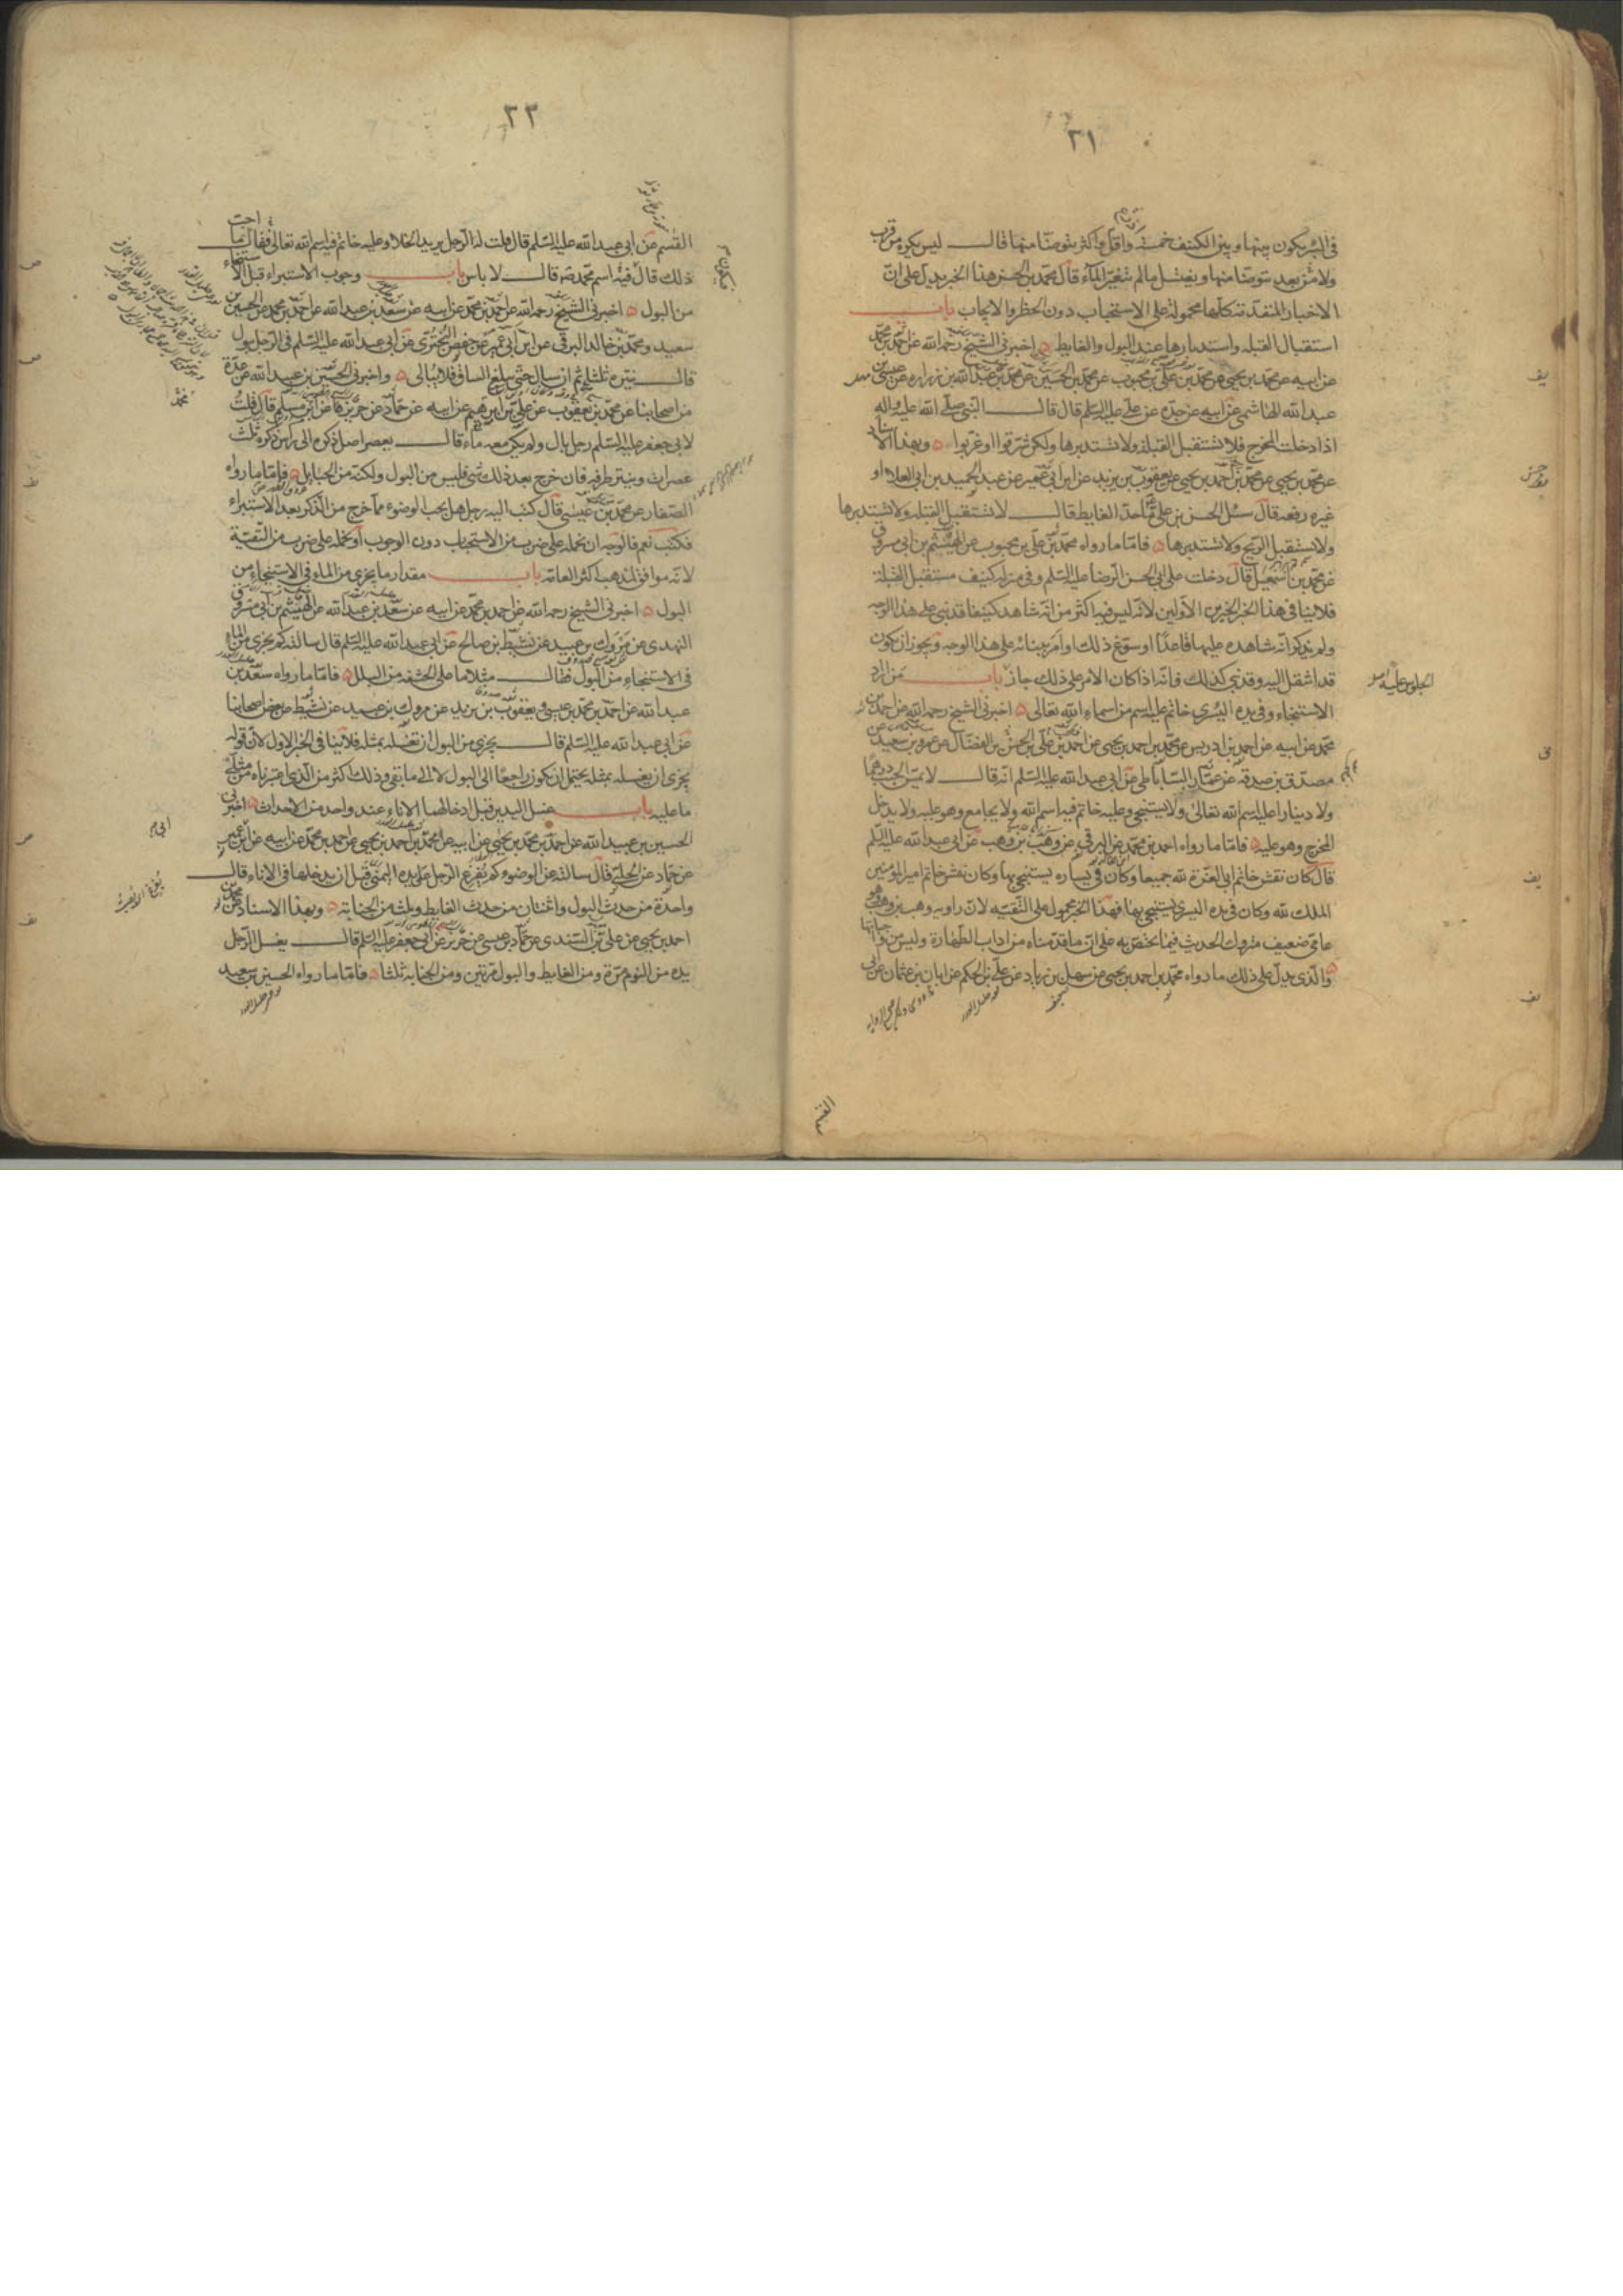 ٣١
في البئر يكون بينها وبين الكنيف خمسة واقل واكثر يتوضا منها قال ليس يكره من قرب
ولا من بعد يتوضا منها ويغتسل ما لم يتغير الماء قال محمد بن الحسن هذا الخبر يدل على ان
الاخبار المتقدمة كلها محمولة على الاستحباب دون الحظر والايجاب باب
استقبال القبله واستدبارها عند البول والغايط اخبرني الشيخ رحمه الله عن احمد بن محمد
عن ابيه عن محمد بن يحيى عن محمد بن علي بن محبوب عن محمد بن الحسين عن محمد بن عبد الله بن زراره عن عيسى بن
عبد الله الهاشمي عن ابيه عن جده عن علي عليه السلم قال قال النبي صلى الله عليه واله
اذا دخلت المخرج فلا تستقبل القبلة ولا تستدبرها ولكن شرقوا او غربوا وبهذا الاسناد
عن محمد بن يحيى عن محمد بن احمد بن يحيى عن يعقوب بن يزيد عن ابن ابي عمير عن عبد الحميد بن ابي العلا او
غيره رفعه قال سئل الحسن بن علي ما حد الغايط قال لا تستقبل القبله ولا تستدبرها
ولا تستقبل الريح ولا تستدبرها فاما ما رواه محمد بن علي بن محبوب عن الهيثم بن ابي مسروق
عن محمد بن اسمعيل قال دخلت على ابي الحسن الرضا عليه السلم وفي منزله كنيف مستقبل القبلة
فلا ينافي هذا الخبر الخبرين الاولين لانه ليس فيه اكثر من انه شاهد كنيفا قد بني على هذا الوجه
ولم يذكر انه شاهده عليها قاعدا او سوغ ذلك او امر ببنائه على هذا الوجه ويجوز ان يكون
قد انتقل اليه وقد بني كذلك فانه اذا كان الامر على ذلك جاز باب من اراد
الجلوس عليه
الاستنجاء وفي يده اليسرى خاتم عليه اسم من اسماء الله تعالى اخبرني الشيخ رحمه الله عن احمد بن
محمد عن ابيه عن احمد بن ادريس عن محمد بن احمد بن يحيى عن احمد بن علي بن الحسن بن الفضال عن عمرو بن سعيد عن
مصدق بن صدقه عن عمار الساباطي عن ابي عبد الله عليه السلم انه قال لا يمس الجنب درهما
ولا دينارا عليه اسم الله تعالى ولا يستنجي وعليه خاتم فيه اسم الله ولا يجامع وهو عليه ولا يدخل
المخرج وهو عليه فاما ما رواه احمد بن محمد عن البرقي عن وهب بن وهب عن ابي عبد الله عليه السلم
قال كان نقش خاتم ابي العزة لله جميعا وكان في يساره يستنجي بها وكان نقش خاتم امير المؤمنين
الملك لله وكان في يده اليسرى يستنجي بها فهذا الخبر محمول على التقيه لان راويه وهب بن وهب وهو
عامي ضعيف متروك الحديث فيما يختص به على ان ما قدمناه من اداب الطهارة وليس من واجباتها
والذي يدل على ذلك ما رواه محمد بن احمد بن يحيى عن سهل بن زياد عن علي بن الحكم عن ابان بن عثمان عن ابي
القسم
٣٢
القسم عن ابي عبد الله عليه السلم قال قلت له الرجل يريد الخلا وعليه خاتم فيه اسم الله تعالى فقال ما احب
ذلك قال فيه اسم محمد ص قال لا باس باب وجوب الاستبراء قبل الاستنجاء
من البول اخبرني الشيخ رحمه الله عن احمد بن محمد عن ابيه عن سعد بن عبد الله عن احمد بن محمد عن الحسين بن
سعيد ومحمد بن خالد البرقي عن ابن ابي عمير عن حفص البختري عن ابي عبد الله عليه السلم في الرجل يبول
قال ينتره ثلثا ثم ان سال حتى يبلغ الساق فلا يبالي واخبرني الحسين بن عبيد الله عن عدة
من اصحابنا عن محمد بن يعقوب عن علي بن ابرهيم عن ابيه عن حماد عن حريز عن محمد بن مسلم قال قلت
لابي جعفر عليه السلم رجل بال ولم يكن معه ماء قال يعصر اصل ذكره الى راس ذكره ثلث
عصرات وينتر طرفه فان خرج بعد ذلك شي فليس من البول ولكنه من الحبايل فاما ما رواه
الصفار عن محمد بن عيسى قال كتب اليه رجل هل يجب الوضوء مما خرج من الذكر بعد الاستبراء
فكتب نعم فالوجه ان نحمله على ضرب من الاستحباب دون الوجوب او نحمله على ضرب من التقية
لانه موافق لمذهب اكثر العامة باب مقدار ما يجزي من الماء في الاستنجاء من
البول اخبرني الشيخ رحمه الله عن احمد بن محمد عن ابيه عن سعد بن عبد الله عن الهيثم بن ابي مسروق
النهدي عن مروك بن عبيد عن نشيط بن صالح عن ابي عبد الله عليه السلم قال سالته كم يجزي من الماء
في الاستنجاء من البول فقال مثلا ما على الحشفه من البلل فاما ما رواه سعد بن
عبد الله عن احمد بن محمد بن عيسى ويعقوب بن يزيد عن مروك بن عبيد عن نشيط عن بعض اصحابنا
عن ابي عبد الله عليه السلم قال يجزي من البول ان تغسله بمثله فلا ينافي الخبر الاول لان قوله
يجزي ان يغسله بمثله يحتمل ان يكون راجعا الى البول لا الى ما بقي وذلك اكثر من الذي اعتبرناه من مثلي
ما عليه باب غسل اليدين قبل ادخالهما الاناء عند واحد من الاحداث اخبرني
الحسين بن عبيد الله عن احمد بن محمد بن يحيى عن ابيه عن محمد بن احمد بن يحيى عن احمد بن محمد عن ابيه عن ابن ابي عمير
عن حماد عن الحلبي قال سالته عن الوضوء كم يفرغ الرجل على يده اليمنى قبل ان يدخلها في الاناء قال
واحدة من حدث البول واثنتان من حدث الغايط وثلث من الجنابة وبهذا الاسناد عن محمد بن
احمد بن يحيى عن علي بن السندي عن حماد بن عيسى عن حريز عن ابي جعفر عليه السلم قال يغسل الرجل
يده من النوم مرة ومن الغايط والبول مرتين ومن الجنابة ثلثا فاما ما رواه الحسين بن سعيد